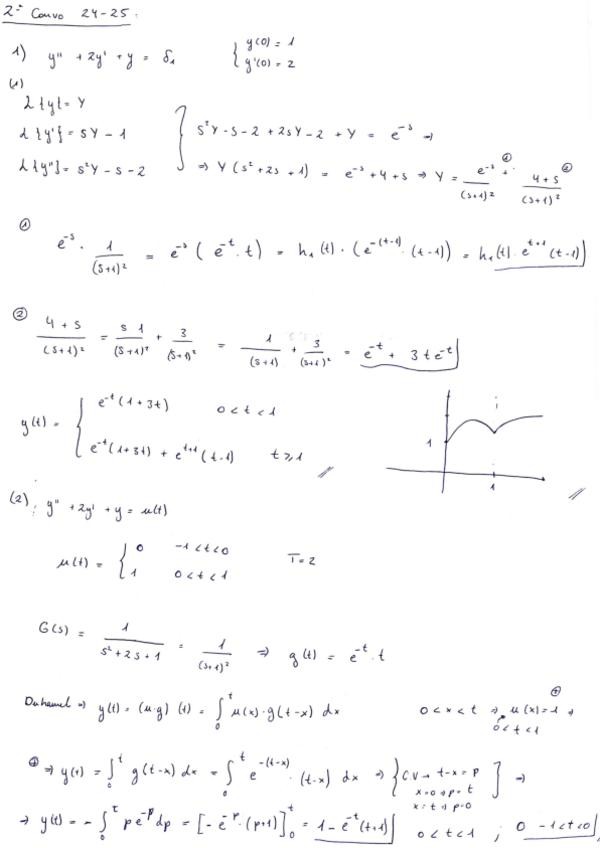 2ª Convo 24-25:
1) y'' + 2y' + y = δ₁ { y(0) = 1
y'(0) = 2
(1)
L{y} = Y
L{y'} = sY - 1
L{y''} = s²Y - s - 2
} s²Y - s - 2 + 2sY - 2 + Y = e^-s ⇒
⇒ Y(s² + 2s + 1) = e^-s + 4 + s ⇒ Y = e^-s/(s+1)² ① + (4+s)/(s+1)² ②
①
e^-s · 1/(s+1)² = e^-s (e^-t · t) = h₁(t) · (e^-(t-1) · (t-1)) = h₁(t) · e^t+1 (t-1)
②
(4+s)/(s+1)² = (s 1)/(s+1)² + 3/(s+1)² = 1/(s+1) + 3/(s+1)² = e^-t + 3te^-t
y(t) = { e^-t (1+3t) 0 < t < 1
e^-t (1+3t) + e^t+1 (t-1) t ≥ 1 //
1
1
//
(2) y'' + 2y' + y = u(t)
u(t) = { 0 -1 < t < 0
1 0 < t < 1
T = 2
G(s) = 1/(s² + 2s + 1) = 1/(s+1)² ⇒ g(t) = e^-t · t
Duhamel ⇒ y(t) = (u·g)(t) = ∫₀^t u(x) · g(t-x) dx 0 < x < t ⇒ u(x) = 1 ⇒
0 < t < 1
⇒ y(t) = ∫₀^t g(t-x) dx = ∫₀^t e^-(t-x) · (t-x) dx ⇒ { C.V → t-x = p
x=0 → p=t
x=t → p=0 } ⇒
⇒ y(t) = - ∫₀^t pe^-p dp = [-e^-p · (p+1)]₀^t = 1 - e^-t (t+1) 0 < t < 1 ; 0 -1 < t < 0